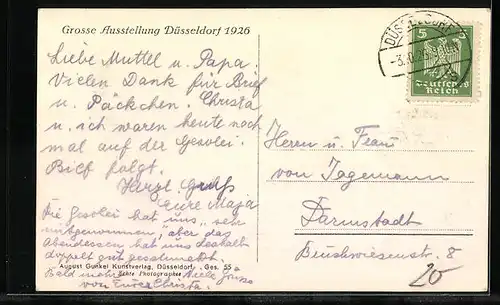 Grosse Ausstellung Düsseldorf 1926
Liebe Muttel u. Papa.
Vielen Dank für Brief
u. Päckchen. Christa
u. ich waren heute noch
mal auf der Gesolei.
Brief folgt.
Herzl. Gruß
Eure Maja
Die Gesolei hat uns "sehr
mitgenommen", aber das
Abendessen hat uns deshalb
doppelt gut geschmeckt.
August Gunkel Kunstverlag, Düsseldorf. Ges. 55
Echte Photographie
Bald mehr. Viele Grüße
von Eurer Christa.
DÜSSELDORF
5 5
Deutsches
Reich
Herrn u. Frau
von Tagemann
Darmstadt
8
20